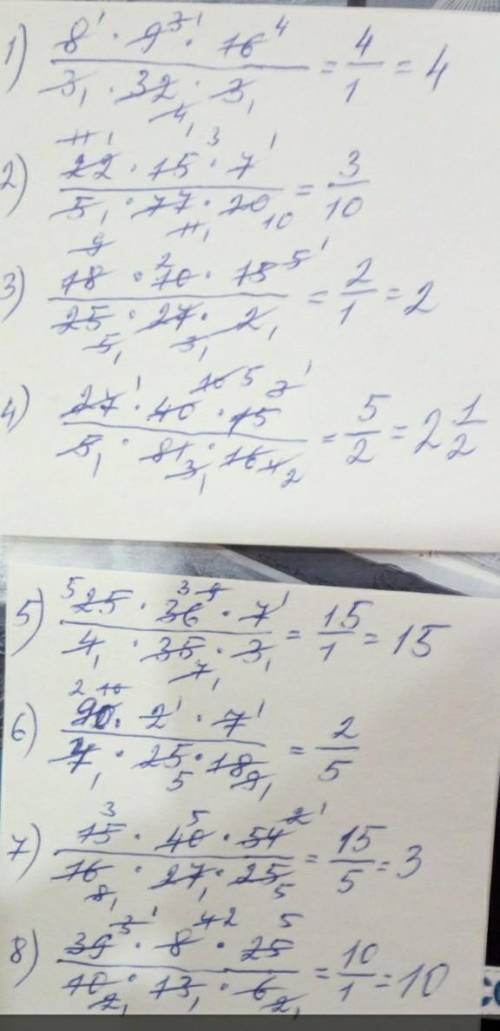 1) (8 · 9 · 16) / (3 · 32 · 3) = 4/1 = 4
2) (22 · 15 · 7) / (5 · 77 · 20) = 3/10
3) (18 · 70 · 15) / (25 · 27 · 2) = 2/1 = 2
4) (27 · 40 · 15) / (5 · 81 · 16) = 5/2 = 2 1/2
5) (25 · 36 · 7) / (4 · 35 · 3) = 15/1 = 15
6) (90 · 2 · 7) / (7 · 25 · 18) = 2/5
7) (15 · 40 · 54) / (16 · 27 · 25) = 15/5 = 3
8) (39 · 8 · 25) / (10 · 13 · 6) = 10/1 = 10